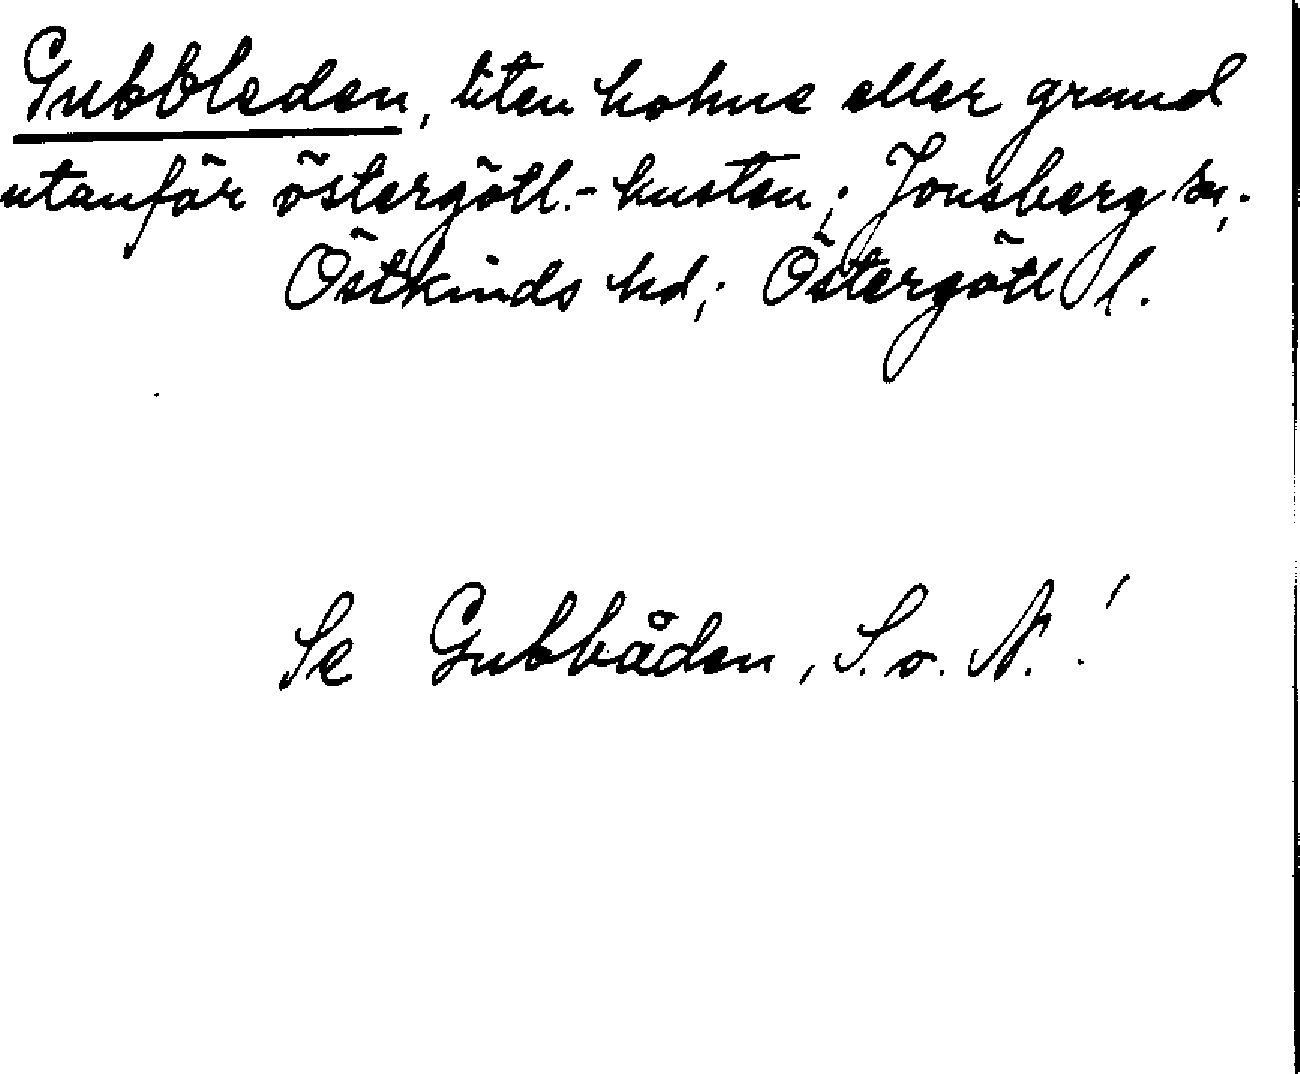 Gubbleden, liten holme eller grund
utanför östergötl.-kusten; Jonsberg sn;
Östkinds hd; Östergötl l.
Se Gubbåden, S. o. N.!